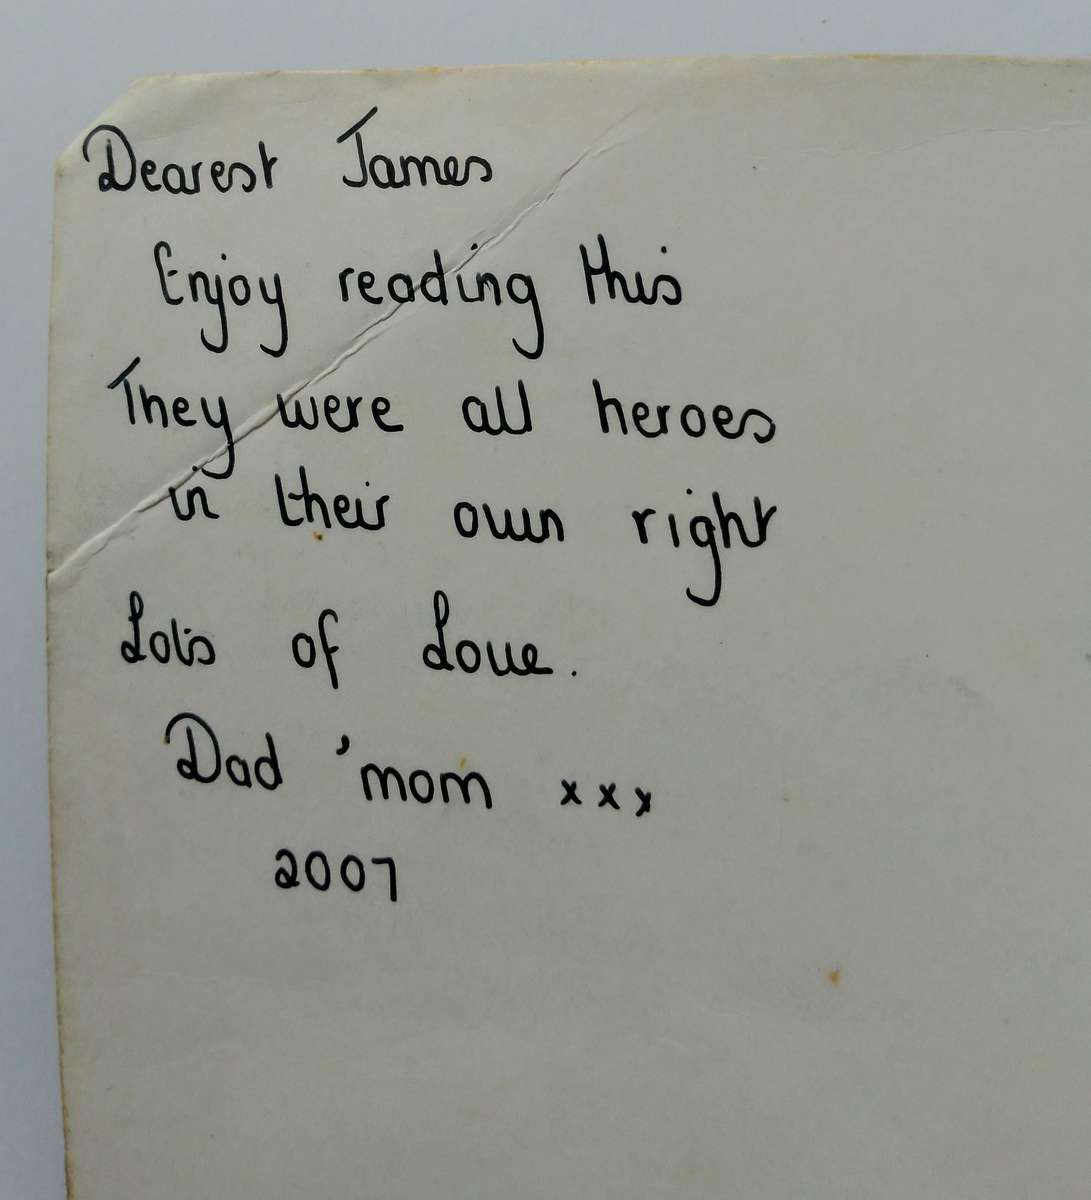 Dearest James
Enjoy reading this
They were all heroes
in their own right
Lots of Love.
Dad 'mom xxx
2007